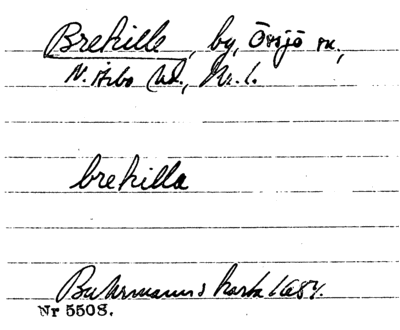 Brekille, by, Örsjö sn,
N. Åsbo hd, Kr. l.
brekilla
Buhrmanns karta 1684.
Nr 5508.